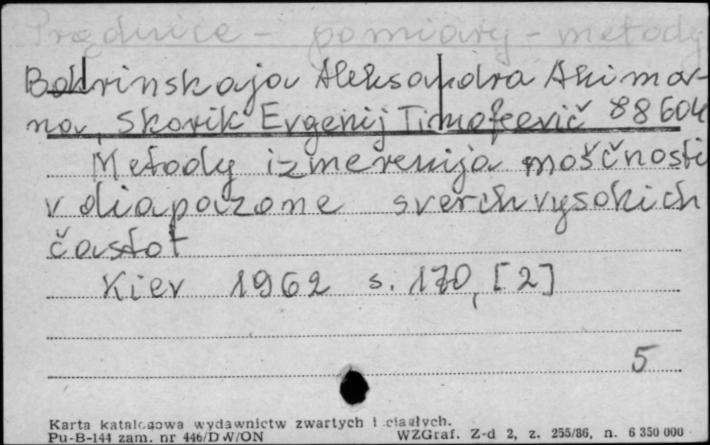 Prądnice - pomiary - metody
Bobrinskaja Aleksandra Akimov-
na, Skorik Evgenij Timofeevič 88604
Metody izmerenija moščnosti
v diapazone sverchvysokich
častot
Kiev 1962 s. 170, [2]
5
Karta katalogowa wydawnictw zwartych i ciągłych.
Pu-B-144 zam. nr 446/DW/ON WZGraf. Z-d 2, z. 255/86, n. 6 350 000